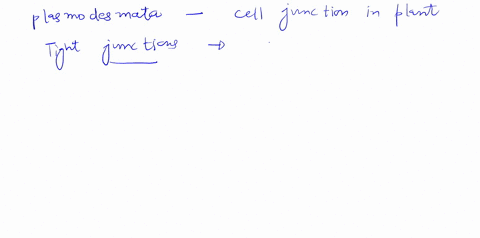 plasmodesmata — cell junction in plant
Tight junctions →